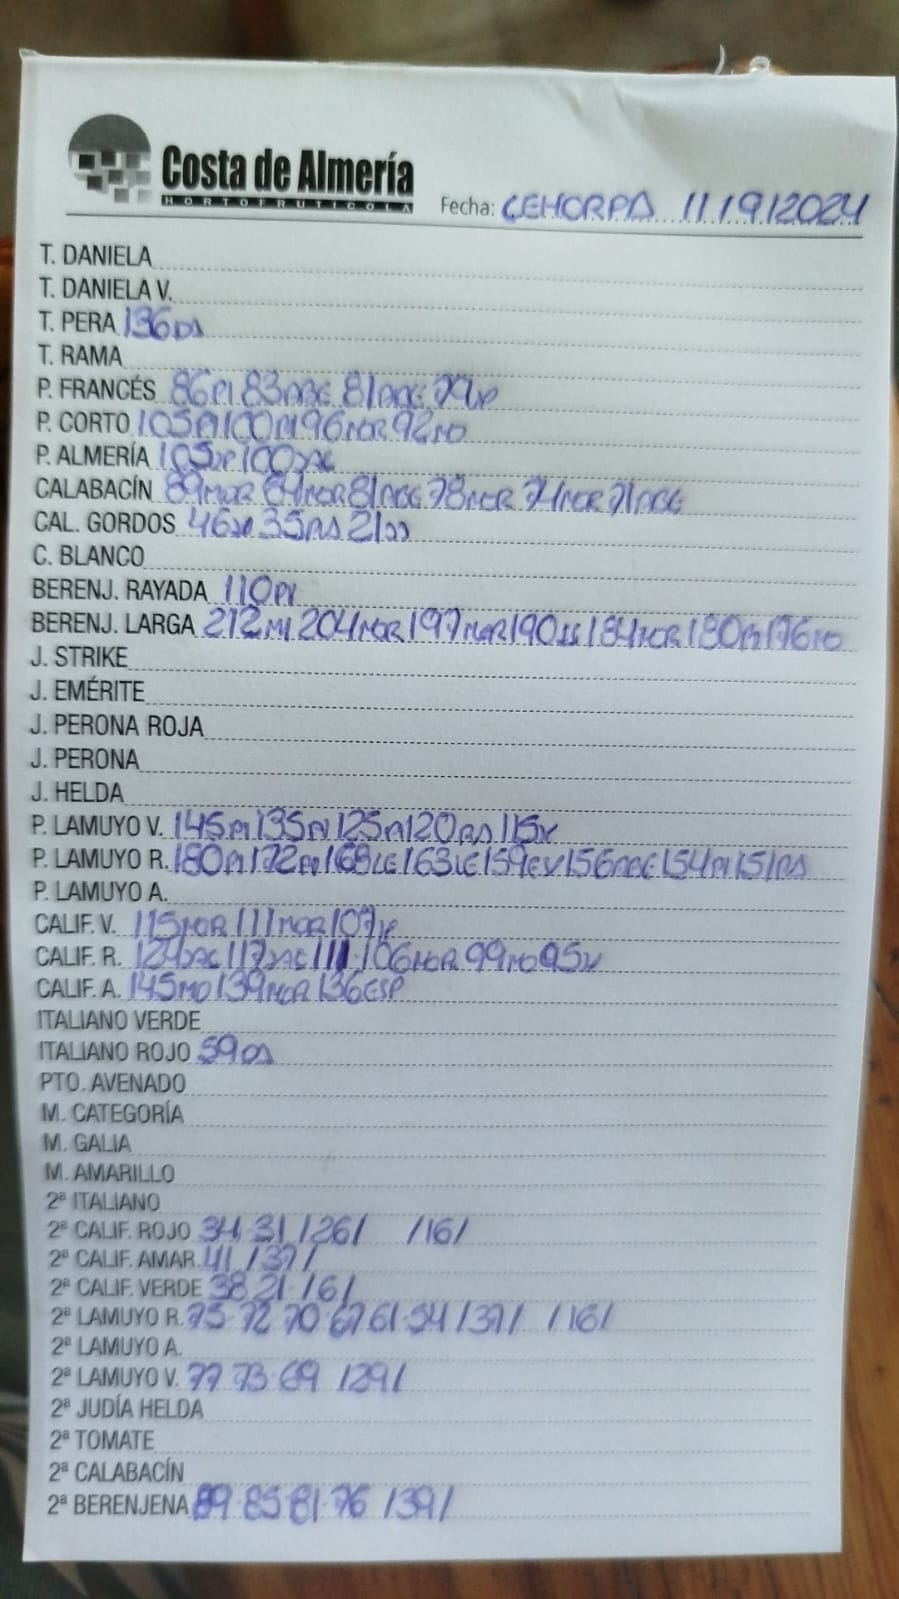 Costa de Almería
HORTOFRUTICOLA
Fecha: CEHORPA 11/9/2024
T. DANIELA
T. DANIELA V.
T. PERA 136DS
T. RAMA
P. FRANCÉS 86PI 83ABE 81ABE
P. CORTO 105PI 100PI 96MOR 92MO
P. ALMERÍA 105 100
CALABACÍN 89MOR 84MOR 81ABE 78MOR 74MOR 71ABE
CAL. GORDOS 46 35 21
C. BLANCO
BERENJ. RAYADA 110PI
BERENJ. LARGA 212 204MOR 197MOR 190 184MOR 180PI 176MO
J. STRIKE
J. EMÉRITE
J. PERONA ROJA
J. PERONA
J. HELDA
P. LAMUYO V. 145PI 135PI 125PI 120 115
P. LAMUYO R. 180PI 172PI 168LE 163LE 159EV 156ABE 154PI 151
P. LAMUYO A.
CALIF. V. 115MOR 111MOR 107
CALIF. R. 124 117 111 106MOR 99MO 95
CALIF. A. 145MO 139MOR 136ESP
ITALIANO VERDE
ITALIANO ROJO 59DS
PTO. AVENADO
M. CATEGORÍA
M. GALIA
M. AMARILLO
2ª ITALIANO
2ª CALIF. ROJO 34 31 /26/ /16/
2ª CALIF. AMAR. 41 /37/
2ª CALIF. VERDE 38 21 /6/
2ª LAMUYO R. 75 72 70 67 61 54 /37/ /16/
2ª LAMUYO A.
2ª LAMUYO V. 77 73 69 /29/
2ª JUDÍA HELDA
2ª TOMATE
2ª CALABACÍN
2ª BERENJENA 89 85 81 76 /39/